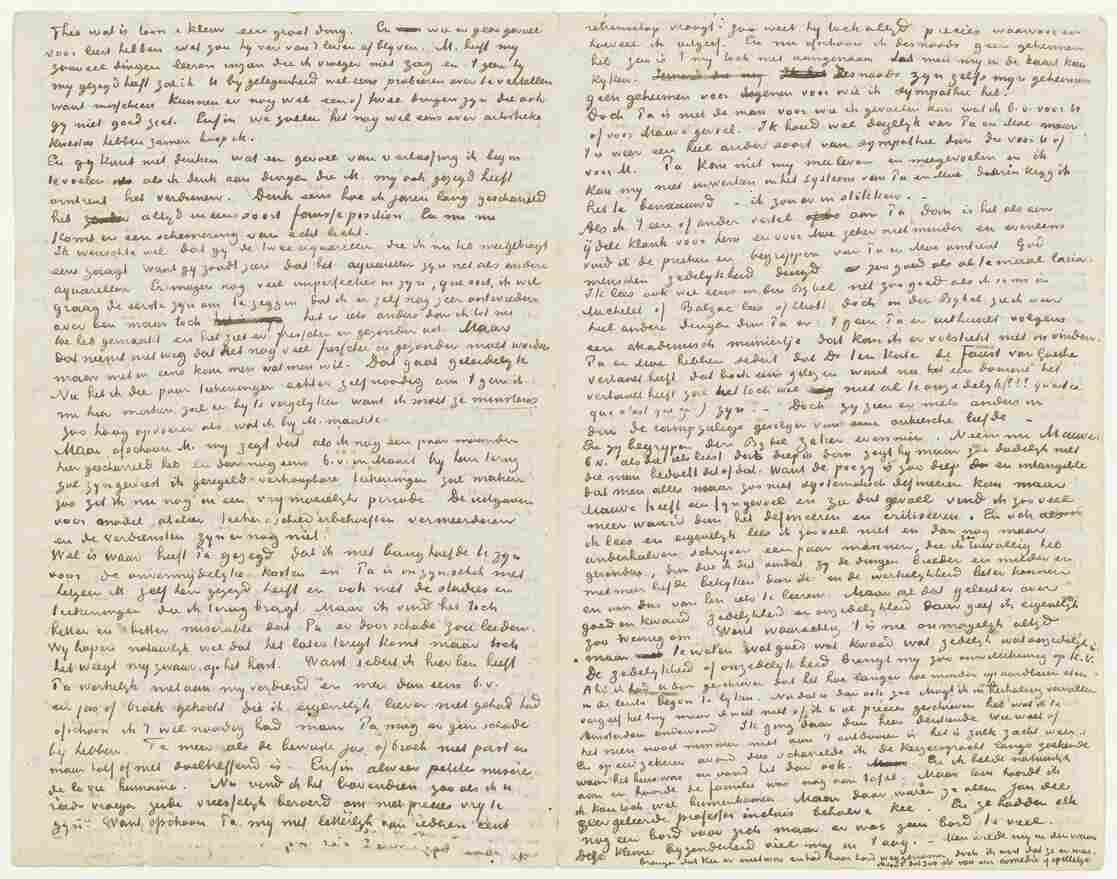 Theo wat is toon & kleur een groot ding. En wie er geen gevoel
voor leert hebben wat zou hij ver van 't leven af blijven. M. heeft my
zooveel dingen leeren inzien die ik vroeger niet zag en 't geen hy
my gezegd heeft zal ik U by gelegenheid wel eens probeeren over te vertellen
want misschien kunnen er nog wel een of twee dingen zyn die ook
gy niet goed ziet. Enfin we zullen het nog wel eens over artistieke
kwesties hebben zamen hoop ik.
En gy kunt niet denken wat een gevoel van verlossing ik begin
te voelen als ik denk aan dingen die M. my ook gezegd heeft
omtrent het verdienen. Denk eens hoe ik jaren lang gescharreld
heb altyd in een soort fausse position. En nu nu
komt er een schemering van echt licht.
Ik wenschte wel dat gy de twee aquarellen die ik nu heb meegebragt
eens zaagt want gy zoudt zien dat het aquarellen zyn net als andere
aquarellen. Er mogen nog veel imperfecties in zyn, que soit, ik wil
graag de eerste zyn om te zeggen dat ik er zelf nog zeer ontevreden
over ben maar toch het is iets anders dan ik tot nu
toe heb gemaakt en het ziet er frisscher en gezonder uit. Maar
dat neemt niet weg dat het nog veel frisscher en gezonder moet worden
maar met een eens kan men wat men wil. Dat gaat geleidelyk
Nu heb ik die paar teekeningen echter zelf noodig om 't geen ik
nu hier maken zal er by te vergelyken want ik moet ze minstens
zoo hoog opvoeren als wat ik by M. maakte.
Maar ofschoon M. my zegt dat als ik nog een paar maanden
hier gescharreld heb en dan nog eens b.v. in Maart by hem terug
zal zyn geweest ik geregeld verkoopbare teekeningen zal maken
zoo zit ik nu nog in een vry moeielyke periode. De uitgaven
voor model, atelier teeken & schilderbehoeften vermeerderen
en de verdiensten zyn er nog niet.
Wel is waar heeft Pa gezegd dat ik niet bang hoefde te zyn
voor de onvermydelyke kosten en Pa is in zyn schik met
hetgeen M. zelf hem gezegd heeft en ook met de studies en
teekeningen die ik terug bragt. Maar ik vind het toch
bitter en bitter miserable dat Pa er door schade zou leiden.
Wy hopen natuurlyk wel dat het later teregt komt maar toch
het weegt my zwaar op het hart. Want sedert ik hier ben heeft
Pa werkelyk niet aan my verdiend en meer dan eens b.v.
een jas of broek gekocht die ik eigentlyk liever niet gehad had
ofschoon ik 't wel noodig had maar Pa mag er geen schade
by hebben. Te meer als de bewuste jas of broek niet past en
maar half of niet doeltreffend is. Enfin alweer petite misère
de la vie humaine. Nu vind ik het bovendien zooals ik U
reeds vroeger zeide vreesselyk beroerd om niet precies vry te
zyn. Want ofschoon Pa my niet letterlyk van iedren cent
rekenschap vraagt zoo weet hy toch altyd precies waarvoor en
hoeveel ik uitgeef. En nu ofschoon ik desnoods geen geheimen
heb zoo is 't my toch niet aangenaam dat men my in de kaart kan
kyken. Desnoods zyn zelfs myn geheimen
geen geheimen voor degenen voor wie ik sympathie heb.
Doch Pa is niet de man voor wie ik gevoelen kan wat ik b.v. voor U
of voor Mauve gevoel. Ik houd wel degelyk van Pa en Moe maar
't is weer een heel ander soort van sympathie dan die voor U of
voor M. Pa kan niet my meeleven en meegevoelen en ik
kan my niet inwerken in het systeem van Pa en Moe daarin krygt ik
het te benaauwd - ik zou er in stikken. -
Als ik 't een of ander vertel aan Pa dan is het als een
ydele klank voor hem en voor Moe zeker niet minder en eveneens
vind ik de preeken en begrippen van Pa en Moe omtrent God
menschen zedelykheid deugd zoo goed als al te maal larie.
Ik lees ook wel eens in den Bybel net zoo goed als ik soms in
Michelet of Balzac lees of Eliot doch in den Bybel zie ik weer
heel andere dingen dan Pa en 't geen Pa er uithaalt volgens
een akademisch maniertje dat kan ik er volstrekt niet in vinden.
Pa en Moe hebben sedert dat Ds ten Kate de Faust van Goethe
vertaald heeft dat boek eens gelezen want nu het een dominé het
vertaald heeft zal het toch wel niet al te onzedelyk!!! (qu'est-ce
que c'est que ça?) zyn -. Doch zy zien er niets anders in
dan de rampzalige gevolgen van eene onkiesche liefde -
En zy begrypen den Bybel zeker evenmin. Neem nu Mauve
b.v. als dat als leest dat diep is dan zegt hy maar zoo dadelyk niet
die man bedoelt dit of dat. Want de poezy is zoo diep en intangible
dat men alles maar zoo niet systematisch definieeren kan maar
Mauve heeft een fyn gevoel en zie dat gevoel vind ik zoo veel
meer waard dan het definieeren en critiseeren. En och als
ik lees en eigentlyk lees ik zoo veel niet en dan nog maar
anderhalven schryver een paar mannen, die ik toevallig heb
gevonden, dan doe ik dit omdat zy de dingen breeder en milder en
met meer liefde bekyken dan ik en de werkelykheid beter kennen
en van dus van hen iets te leeren. Maar al dat geleuter over
goed en kwaad zedelykheid en onzedelykheid daar geef ik eigentlyk
zoo weinig om. Want waarachtig 't is me onmogelyk altyd
maar te weten wat goed wat kwaad wat zedelyk wat onzedelyk is.
De zedelykheid of onzedelykheid brengt my zoo onwillekeurig op K.V.
Ah! ik had u dan geschreven dat het hoe langer hoe minder op aardbeien eten
in de lente begon te lyken. Nu dat is dan ook zoo. Mogt ik in herhaling vervallen
vergeef het my maar ik weet niet of ik U al precies geschreven heb wat ik te
Amsterdam ondervond. Ik ging daar dan heen denkende wie weet of
het neen nooit nimmer niet aan 't ontdooien is het is zulk zacht weer.
En op een zekeren avond dus scharrelde ik de Keizersgracht langs zoekende
waar het huis was en vond het dan ook. En ik belde natuurlyk
aan en hoorde de familie was nog aan tafel. Maar toen hoorde ik
ik kon toch wel binnenkomen. Maar daar waren ze allen Jan die
zeer geleerde professor incluis behalve Kee. En ze hadden elk
nog een bord voor zich maar er was geen bord te veel.
Deze kleine byzonderheid viel my in 't oog. - Men wilde my in den waan
brengen dat Kee er niet was en had haar bord weggenomen, doch ik wist dat ze er was.